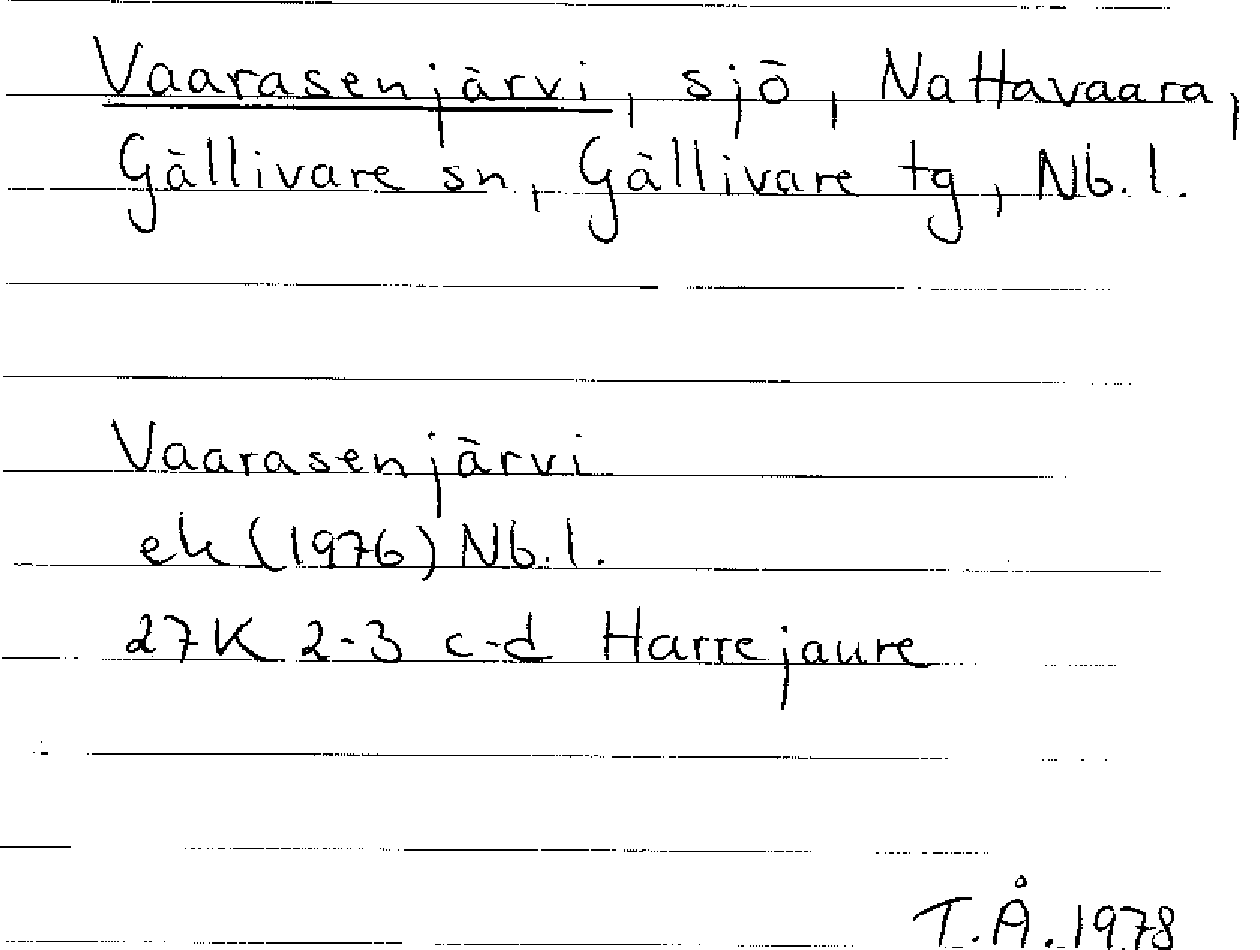 Vaarasenjärvi, sjö, Nattavaara,
Gällivare sn, Gällivare tg, Nb.l.
Vaarasenjärvi
ek (1976) Nb.l.
27K 2-3 c-d Harrejaure
T.Å. 1978